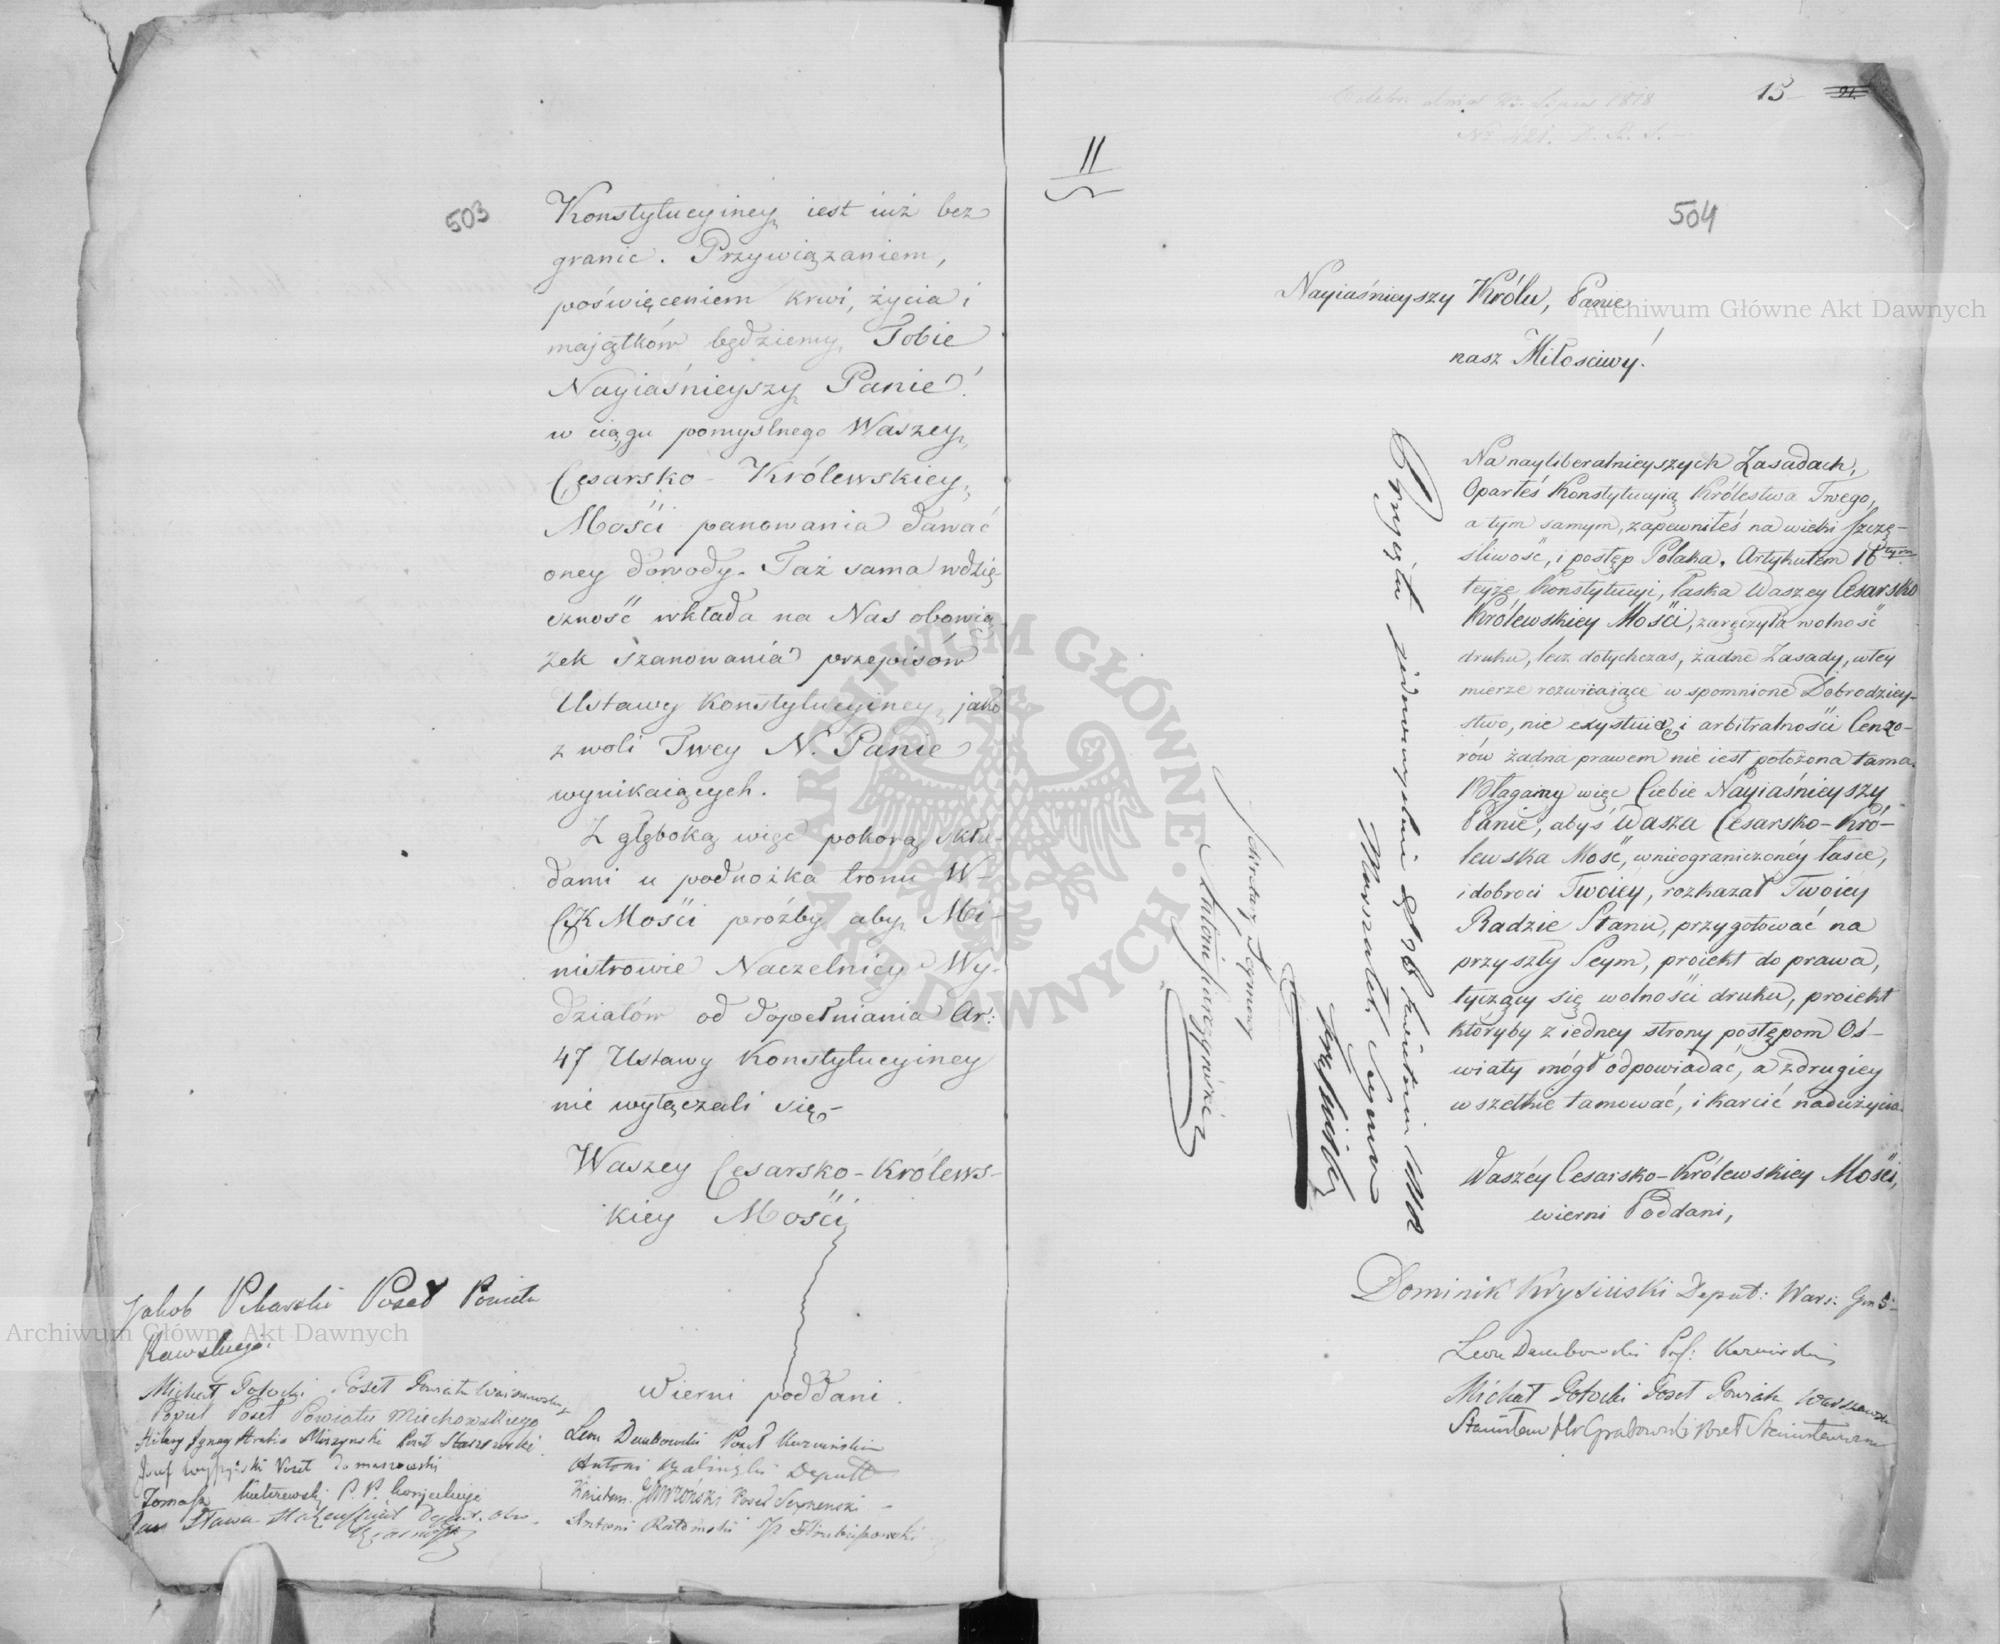 503
Konstytucyiney iest iuż bez
granic. Przywiązaniem,
poświęceniem krwi, życia i
majątków będziemy Tobie
Nayiaśnieyszy Panie!
w ciągu pomyslnego Waszey
Cesarsko-Królewskiey
Mości panowania dawać
oney dowody. Taż sama wdzię-
czność wkłada na Nas obowią
zek szanowania przepisów
Ustawy Konstytucyiney, jako
z woli Twey N. Panie
wynikaiących.
Z głęboką więc pokorą skła-
dami u podnożka tronu W-
CKMości próźby aby Mi-
nistrowie Naczelnicy Wy-
działów od dopełniania Ar:
47 Ustawy Konstytucyiney
nie wyłączali się-
Waszey Cesarsko-Królews-
kiey Mości
wierni poddani.
Jakob Poseł Powiatu
Rawskiego.
Michał Potocki Poseł Powiatu
Popiel Poseł Powiatu Miechowskiego
Hilary Ignacy Poseł
Józef Poseł
Tomasz P. P.
Jan
Leon Dembowski Poseł
Antoni Deputt
Poseł
Antoni
15
II
504
Nayiaśnieyszy Królu, Panie
nasz Miłościwy!
Na nayliberalnieyszych Zasadach,
Oparłeś Konstytucyią Królestwa Twego,
a tym samym, zapewniłeś na wieki szczę-
śliwość, i postęp Polaka. Artykułem 16tym
teyże Konstytucyi, łaska Waszey Cesarsko
Królewskiey Mości, zaręczyła wolność
druku, lecz dotychczas, żadne Zasady, w tey
mierze rozwiiaiące wspomnione Dobrodziey-
stwo, nie exystuią i arbitralności Cenzo-
rów żadna prawem nie iest położona tama.
Błagamy więc Ciebie Nayiaśnieyszy
Panie, abyś Wasza Cesarsko-Kró-
lewska Mość, w nieograniczonéy łasce,
i dobroci Twoiéy, rozkazał Twoiey
Radzie Stanu, przygotować na
przyszły Seym, proiekt do prawa,
tyczący się wolności druku, proiekt
któryby z iedney strony postępom Oś-
wiaty mógł odpowiadać, a z drugiey
wszelkie tamować, i karcić nadużycia.
Waszéy Cesarsko-Królewskiey Mości,
wierni Poddani,
Dominik Krysiński Deput: Wars: Gm 5
Leon Dembowski
Michał Potocki Poseł Powiatu
Stanisław Hr Grabowski Poseł
Przyięta jednomyślnie d. 18
Marszałek Seymu
Sekretarz Seymowy
Archiwum Główne Akt Dawnych
Archiwum Główne Akt Dawnych
ARCHIWUM GŁÓWNE AKT DAWNYCH